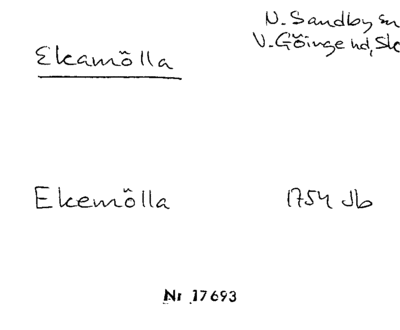 N. Sandby sn
Ekamölla
V. Göinge hd, Sk
Ekemölla 1754 Jb
Nr 17693